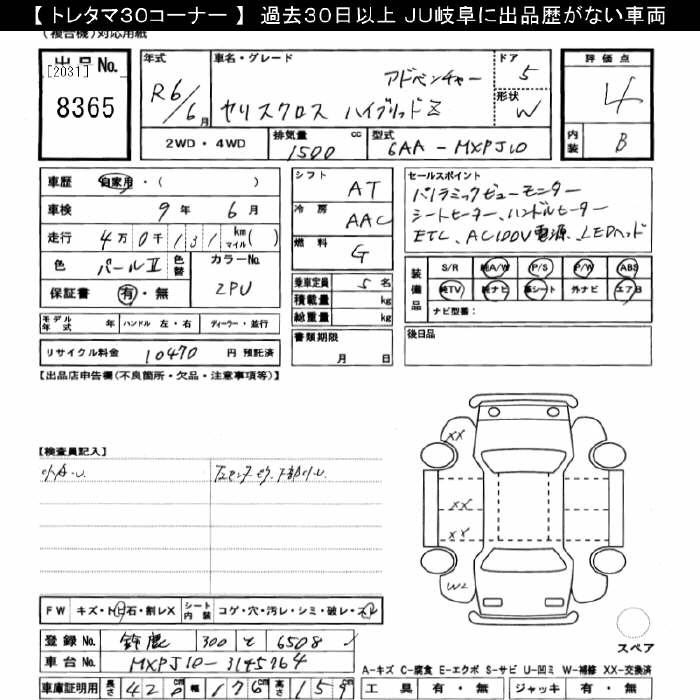 【 トレタマ30コーナー 】 過去30日以上 JU岐阜に出品歴がない車両
(複合機)対応用紙
出品No. [2031] 8365
年式 R6/6月
車名・グレード アドベンチャー
ヤリスクロス ハイブリッドZ
ドア 5
形状 W
評価点 4
内装 B
2WD・4WD 排気量 1500 cc 型式 6AA-MXPJ10
車歴 自家用・( )
車検 9年 6月
走行 4万0千131 km マイル( )
色 パールⅡ 色替 カラーNo. 2PU
保証書 有・無
シフト AT
冷房 AAC
燃料 G
乗車定員 5名
積載量 kg
総重量 kg
書類期限 月 日
セールスポイント
パノラミックビューモニター
シートヒーター、ハンドルヒーター
ETC、AC100V電源、LEDヘッド
装備品 S/R 純A/W P/S P/W ABS
純TV 純ナビ 革シート 外ナビ エアB
ナビ型番:
モデル年式 年 ハンドル 左・右 ディーラー・並行
後日品
リサイクル料金 10470 円 預託済
【出品店申告欄(不良箇所・欠品・注意事項等)】
【検査員記入】
XX
XX
XX
W2
FW キズ・トビ石・割レX シート内装 コゲ・穴・汚レ・シミ・破レ・スレ
登録No. 鈴鹿 300 て 6508
車台No. MXPJ10-3145764
スペア
A-キズ C-腐食 E-エクボ S-サビ U-凹ミ W-補修 XX-交換済
車庫証明用 長さ 420cm 幅 176cm 高さ 159cm
工具 有・無 ジャッキ 有・無